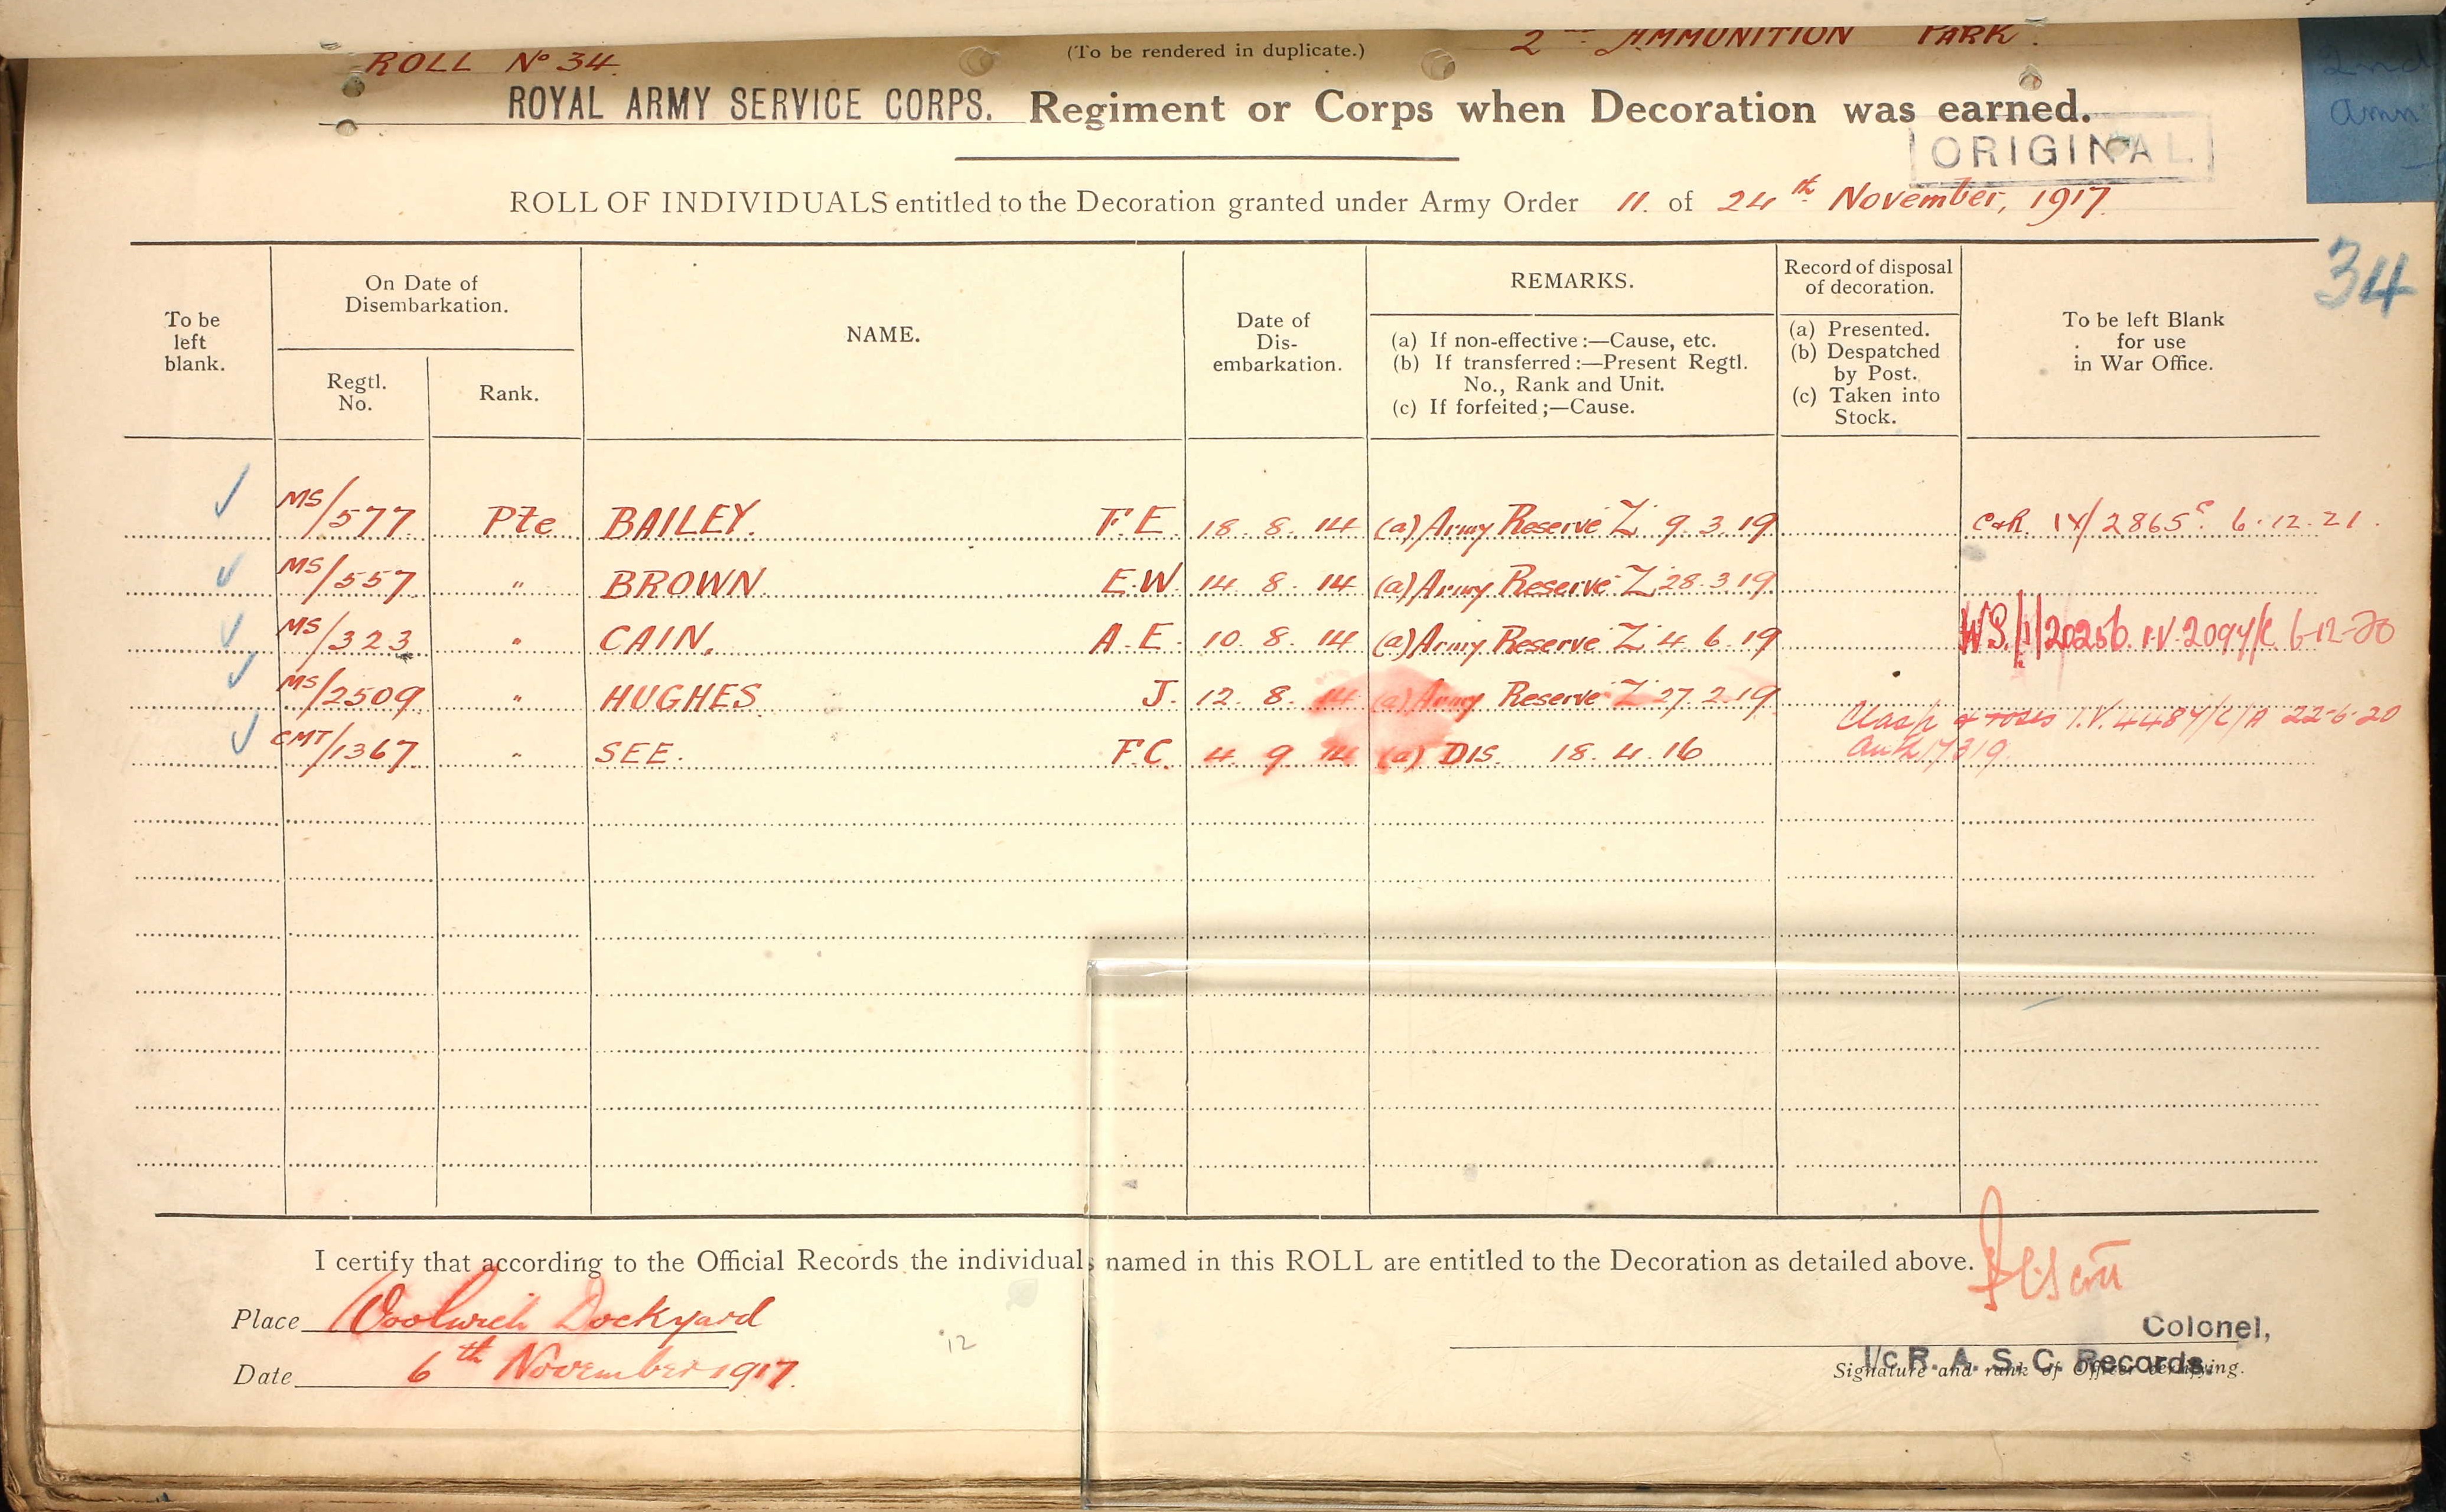 ROLL Nº 34.
(To be rendered in duplicate.)
2nd AMMUNITION PARK.
2nd
amn
ROYAL ARMY SERVICE CORPS. Regiment or Corps when Decoration was earned.
ORIGINAL
ROLL OF INDIVIDUALS entitled to the Decoration granted under Army Order 11. of 24th November, 1917.
34
To be left blank.
On Date of Disembarkation.
Regtl. No.
Rank.
NAME.
Date of Dis-embarkation.
REMARKS.
(a) If non-effective:—Cause, etc.
(b) If transferred:—Present Regtl. No., Rank and Unit.
(c) If forfeited;—Cause.
Record of disposal of decoration.
(a) Presented.
(b) Despatched by Post.
(c) Taken into Stock.
To be left Blank for use in War Office.
MS/577 Pte BAILEY. F.E. 18. 8. 14 (a) Army Reserve "Z" 9. 3. 19 C&R. IV/2865c. 6.12.21.
MS/557 " BROWN E.W. 14. 8. 14 (a) Army Reserve "Z" 28.3.19
MS/323 " CAIN. A.E. 10. 8. 14 (a) Army Reserve "Z" 4. 6. 19 6-12-20
MS/2509 " HUGHES J. 12. 8. 14 (a) Army Reserve "Z" 27.2.19
Clasp & roses I.V. 4484/C/A 22-6-20
CMT/1367 " SEE. F.C. 4. 9 14 (a) DIS. 18. 4. 16
I certify that according to the Official Records the individuals named in this ROLL are entitled to the Decoration as detailed above.
Place Woolwich Dockyard
12
Colonel,
I/c R. A. S. C. Records.
Date 6th November 1917.
Signature and rank of Officer certifying.